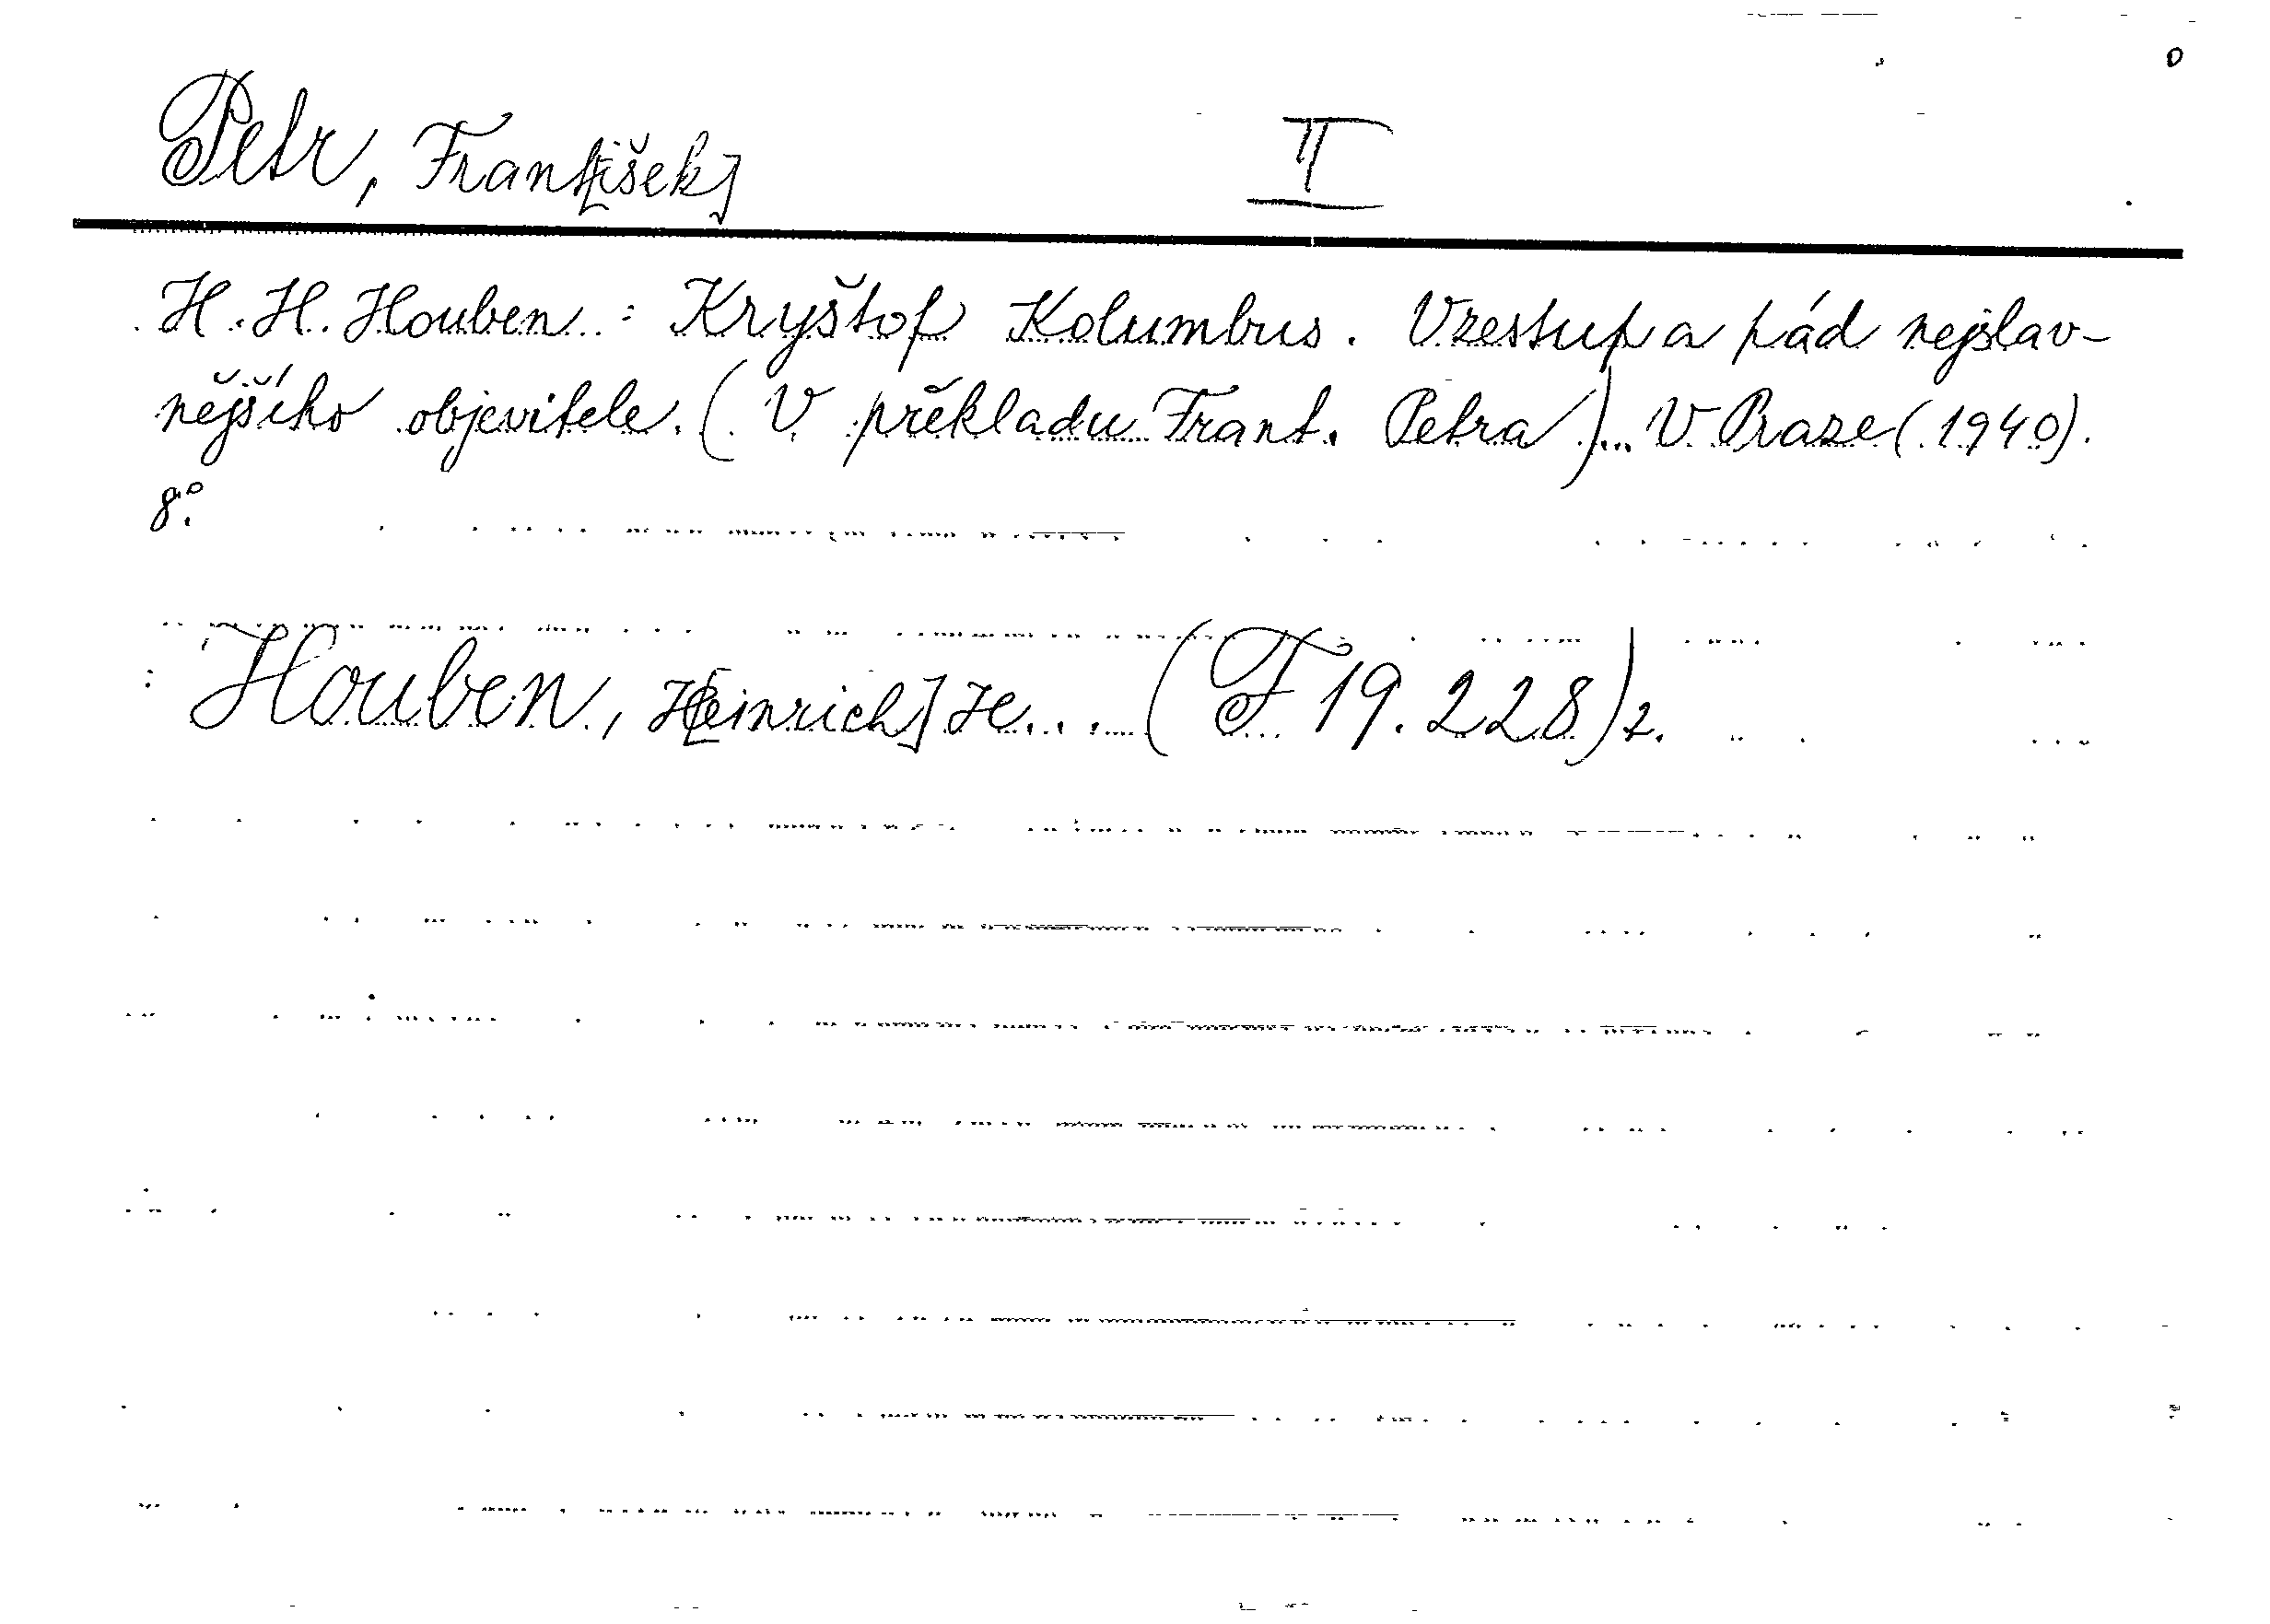 Petr, Frant[išek] II
H. H. Houben : Kryštof Kolumbus. Vzestup a pád nejslav-
nějšího objevitele. (V překladu Frant. Petra)... V Praze (1940).
8°.
Houben, H[einrich] H... (F 19.228) 2.